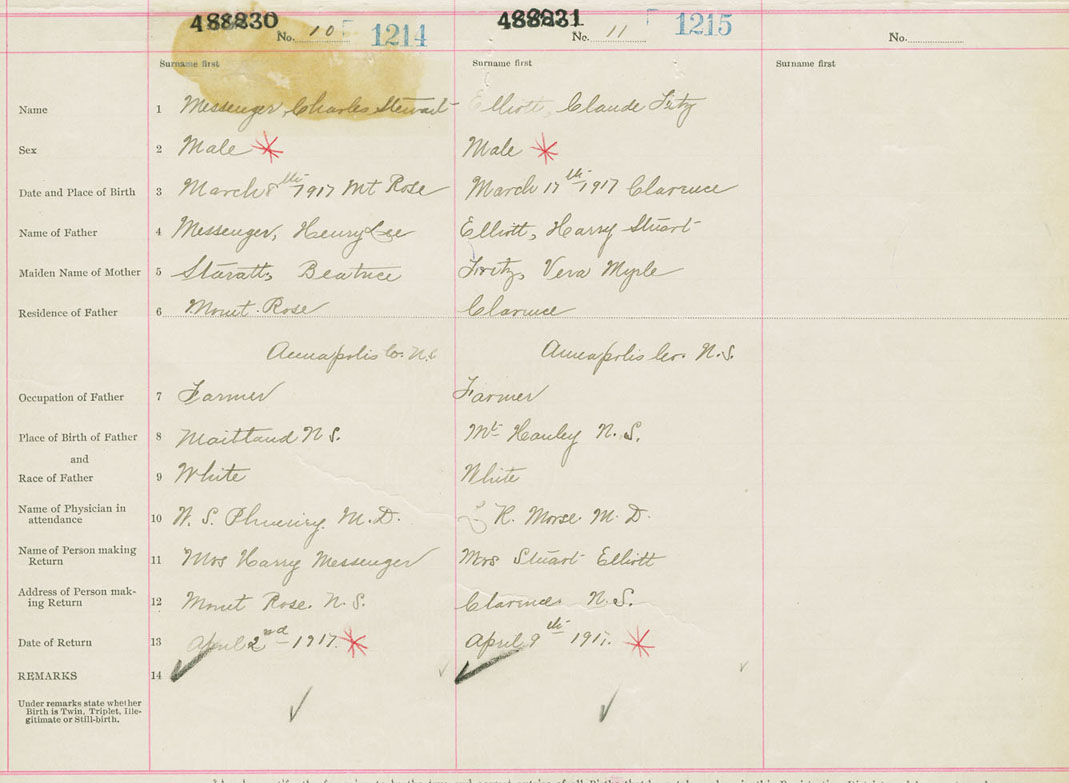 488230 488231
No. 10 1214 No. 11 1215 No.
Surname first Surname first Surname first
Name 1 Messenger, Charles Stewart Elliott, Claude Fritz
Sex 2 Male Male
Date and Place of Birth 3 March 8th 1917 Mt Rose March 17th 1917 Clarence
Name of Father 4 Messenger, Henry Lee Elliott, Harry Stuart
Maiden Name of Mother 5 Staratt, Beatrice Fritz, Vera Myrle
Residence of Father 6 Mount Rose Clarence
Annapolis Co. N.S Annapolis Co. N.S.
Occupation of Father 7 Farmer Farmer
Place of Birth of Father 8 Maitland N S. Mt Hanley N. S.
and
Race of Father 9 White White
Name of Physician in
attendance 10 W. S. M.D. R. Morse M. D.
Name of Person making
Return 11 Mrs Harry Messenger Mrs Stuart Elliott
Address of Person mak-
ing Return 12 Mount Rose. N. S. Clarence N.S.
Date of Return 13 April 2nd 1917. April 9th 1917.
REMARKS 14
Under remarks state whether
Birth is Twin, Triplet, Ille-
gitimate or Still-birth.